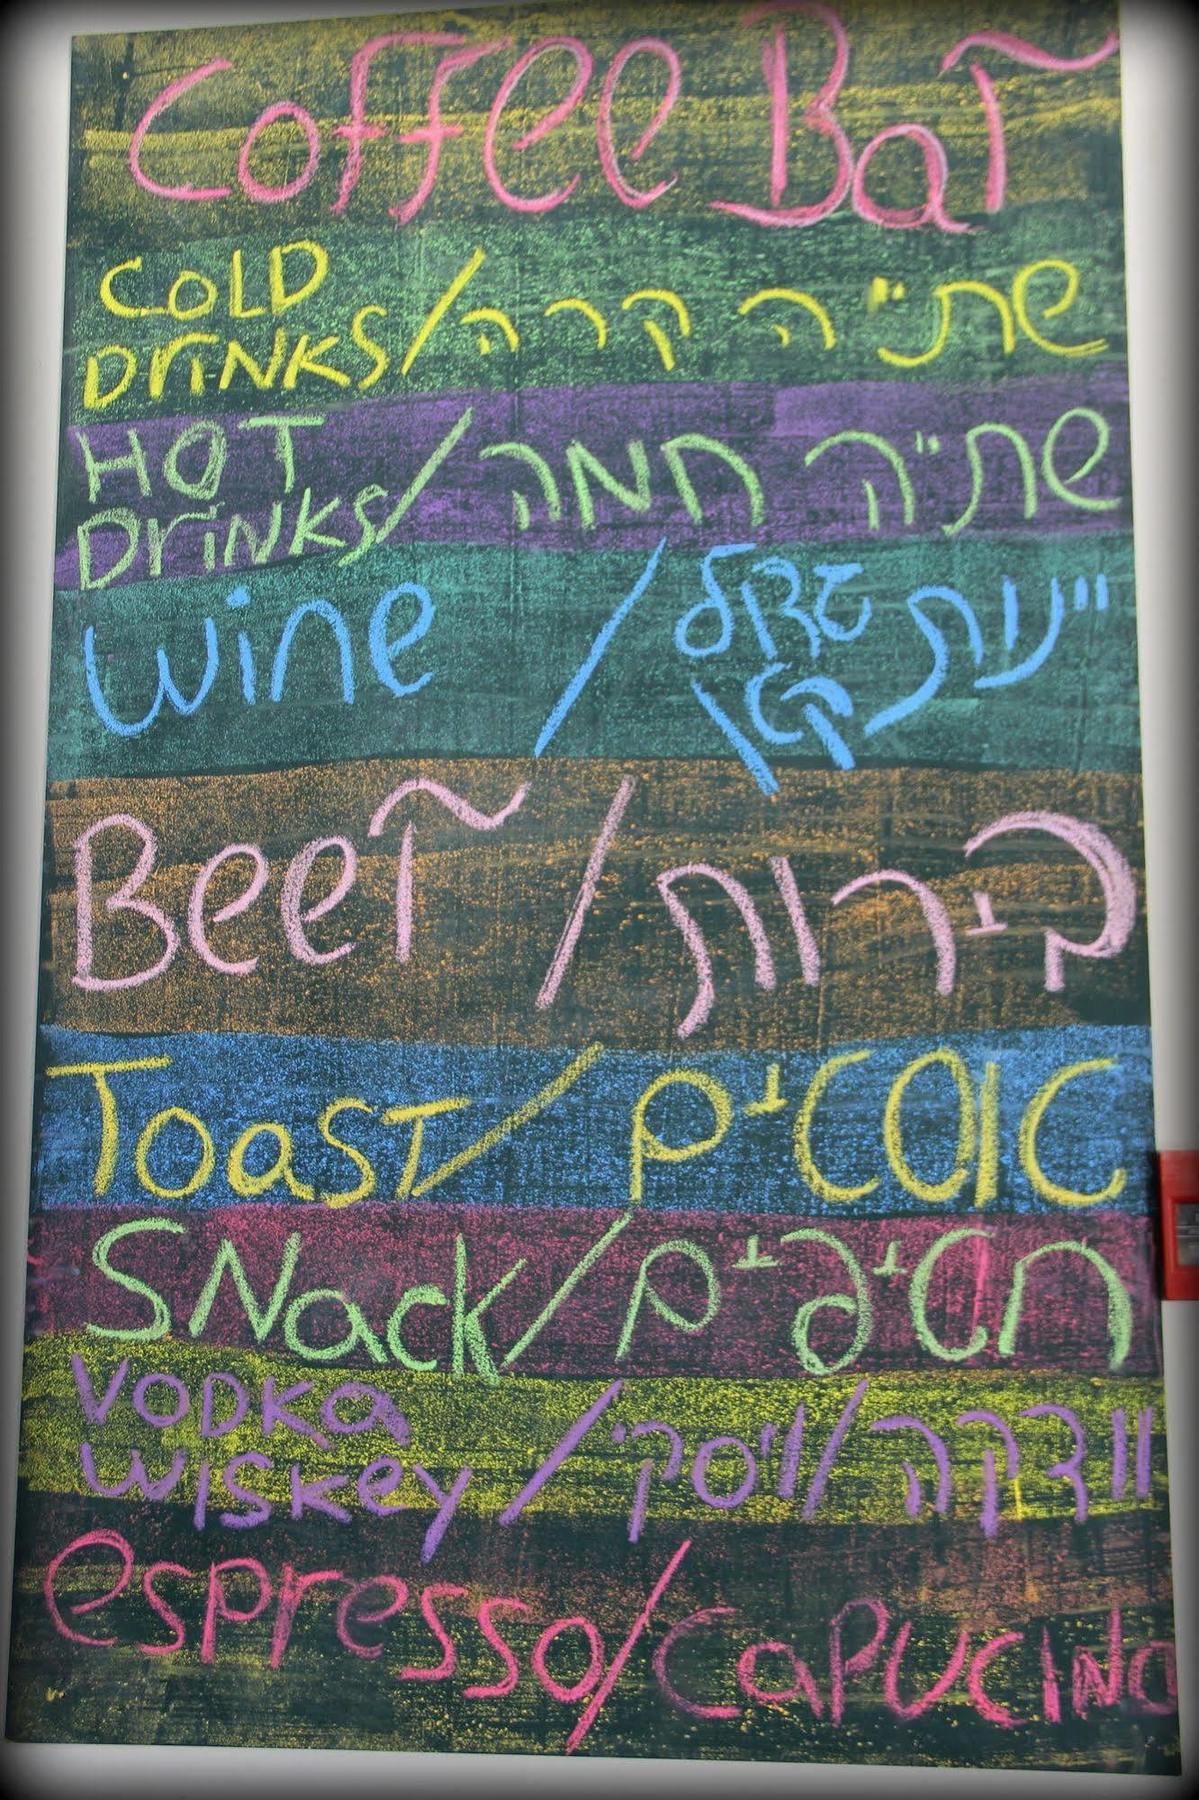 Coffee Bar
COLD DRINKS / שת"יה קרה
HOT DRINKS / שת"יה חמה
wine / יינות גדול קטן
Beer / בירות
Toast / טוסטים
SNack / חטיפים
VODKa WISKey / וודקה / ויסקי
espresso / CaPUCINO